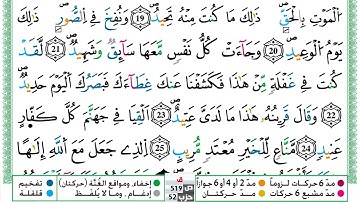 الْمَوْتِ بِالْحَقِّ ۖ ذَٰلِكَ مَا كُنتَ مِنْهُ تَحِيدُ ﴿19﴾ وَنُفِخَ فِي الصُّورِ ۚ ذَٰلِكَ
يَوْمُ الْوَعِيدِ ﴿20﴾ وَجَاءَتْ كُلُّ نَفْسٍ مَّعَهَا سَائِقٌ وَشَهِيدٌ ﴿21﴾ لَّقَدْ
كُنتَ فِي غَفْلَةٍ مِّنْ هَٰذَا فَكَشَفْنَا عَنكَ غِطَاءَكَ فَبَصَرُكَ الْيَوْمَ حَدِيدٌ ﴿22﴾
وَقَالَ قَرِينُهُ هَٰذَا مَا لَدَيَّ عَتِيدٌ ﴿23﴾ أَلْقِيَا فِي جَهَنَّمَ كُلَّ كَفَّارٍ
عَنِيدٍ ﴿24﴾ مَّنَّاعٍ لِّلْخَيْرِ مُعْتَدٍ مُّرِيبٍ ﴿25﴾ الَّذِي جَعَلَ مَعَ اللَّهِ إِلَٰهًا
مدّ 6 حركات لزوماً مدّ 2 أو 4 أو 6 جوازاً ص 519 إخفاء، ومواقع الغُنَّة (حركتان) تفخيم
مدّ مشبع 6 حركات مدّ حركتان حزب 52 إدغام، وما لا يُلفظ قلقلة